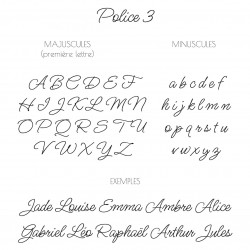 Police 3
MAJUSCULES
(première lettre)
A B C D E F G
H I J K L M N
O P Q R S T U
V W X Y Z
MINUSCULES
a b c d e f
h i j k l m n
o p q r s t u
v w x y z
EXEMPLES
Jade Louise Emma Ambre Alice
Gabriel Léo Raphaël Arthur Jules